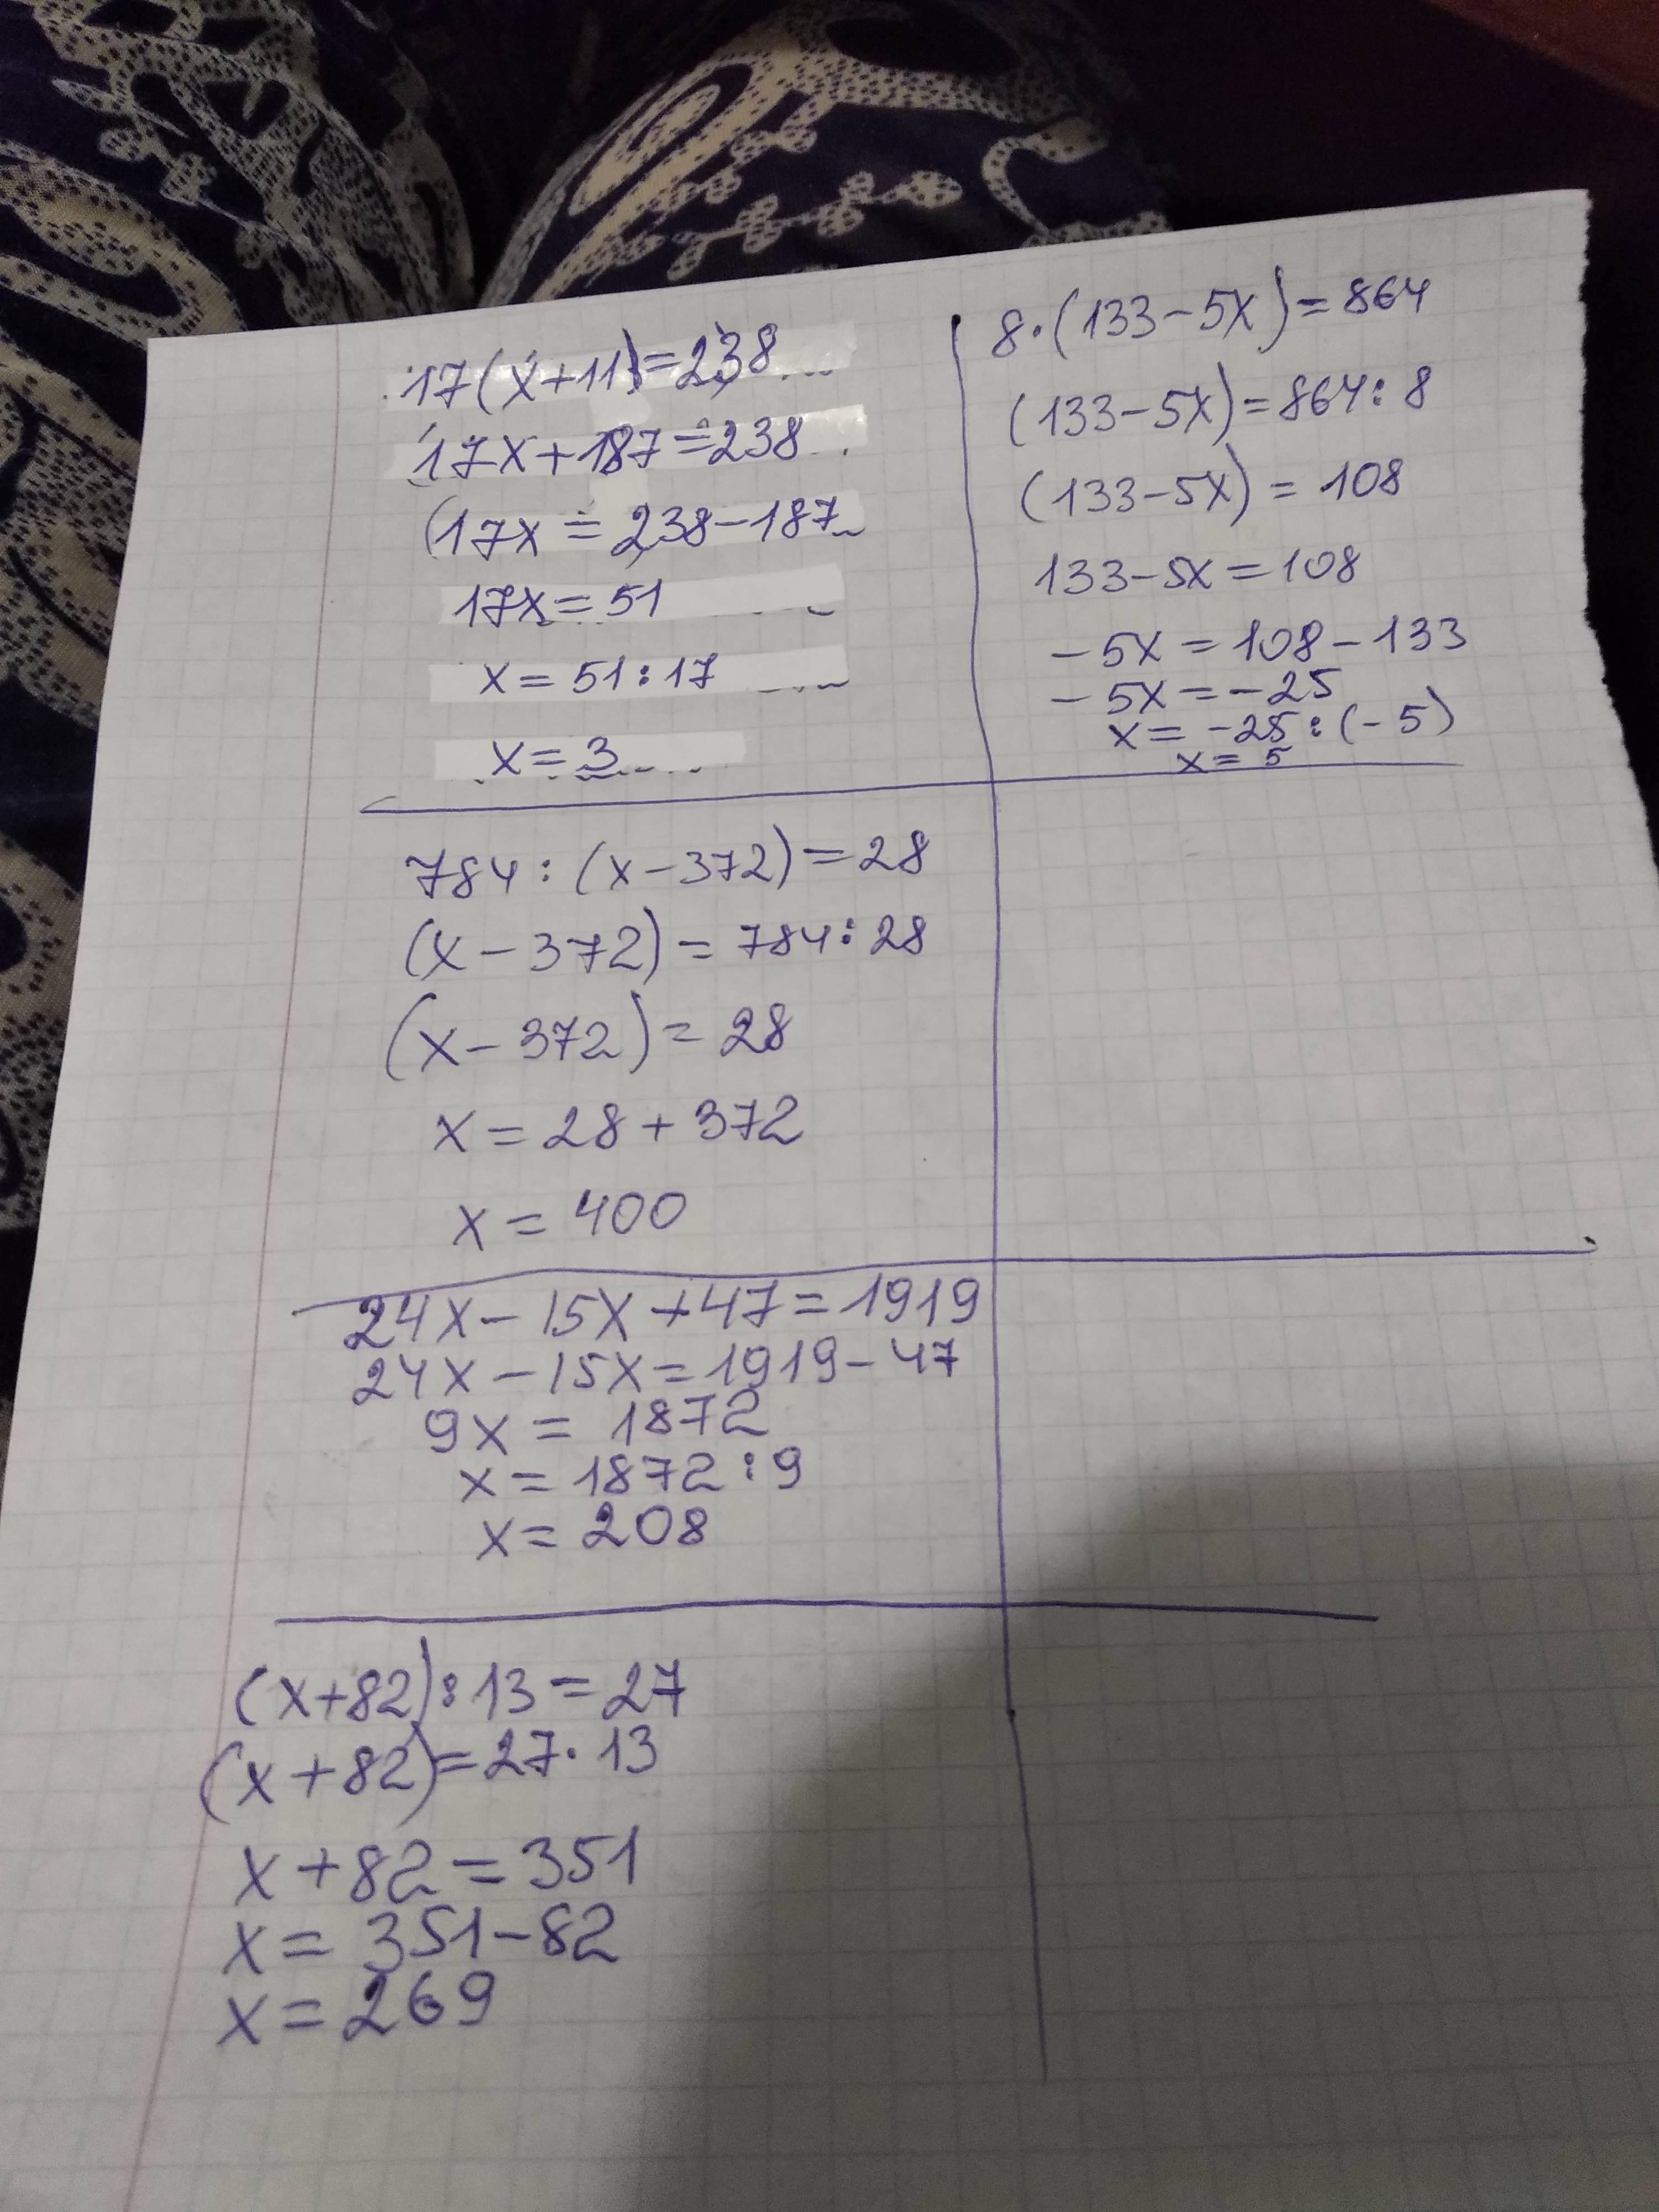 17(x+11)=238
17x+187=238
(17x=238-187
17x=51
x=51:17
x=3
8·(133-5x)=864
(133-5x)=864:8
(133-5x)=108
133-5x=108
-5x=108-133
-5x=-25
x=-25:(-5)
x=5
784:(x-372)=28
(x-372)=784:28
(x-372)=28
x=28+372
x=400
24x-15x+47=1919
24x-15x=1919-47
9x=1872
x=1872:9
x=208
(x+82):13=27
(x+82)=27·13
x+82=351
x=351-82
x=269